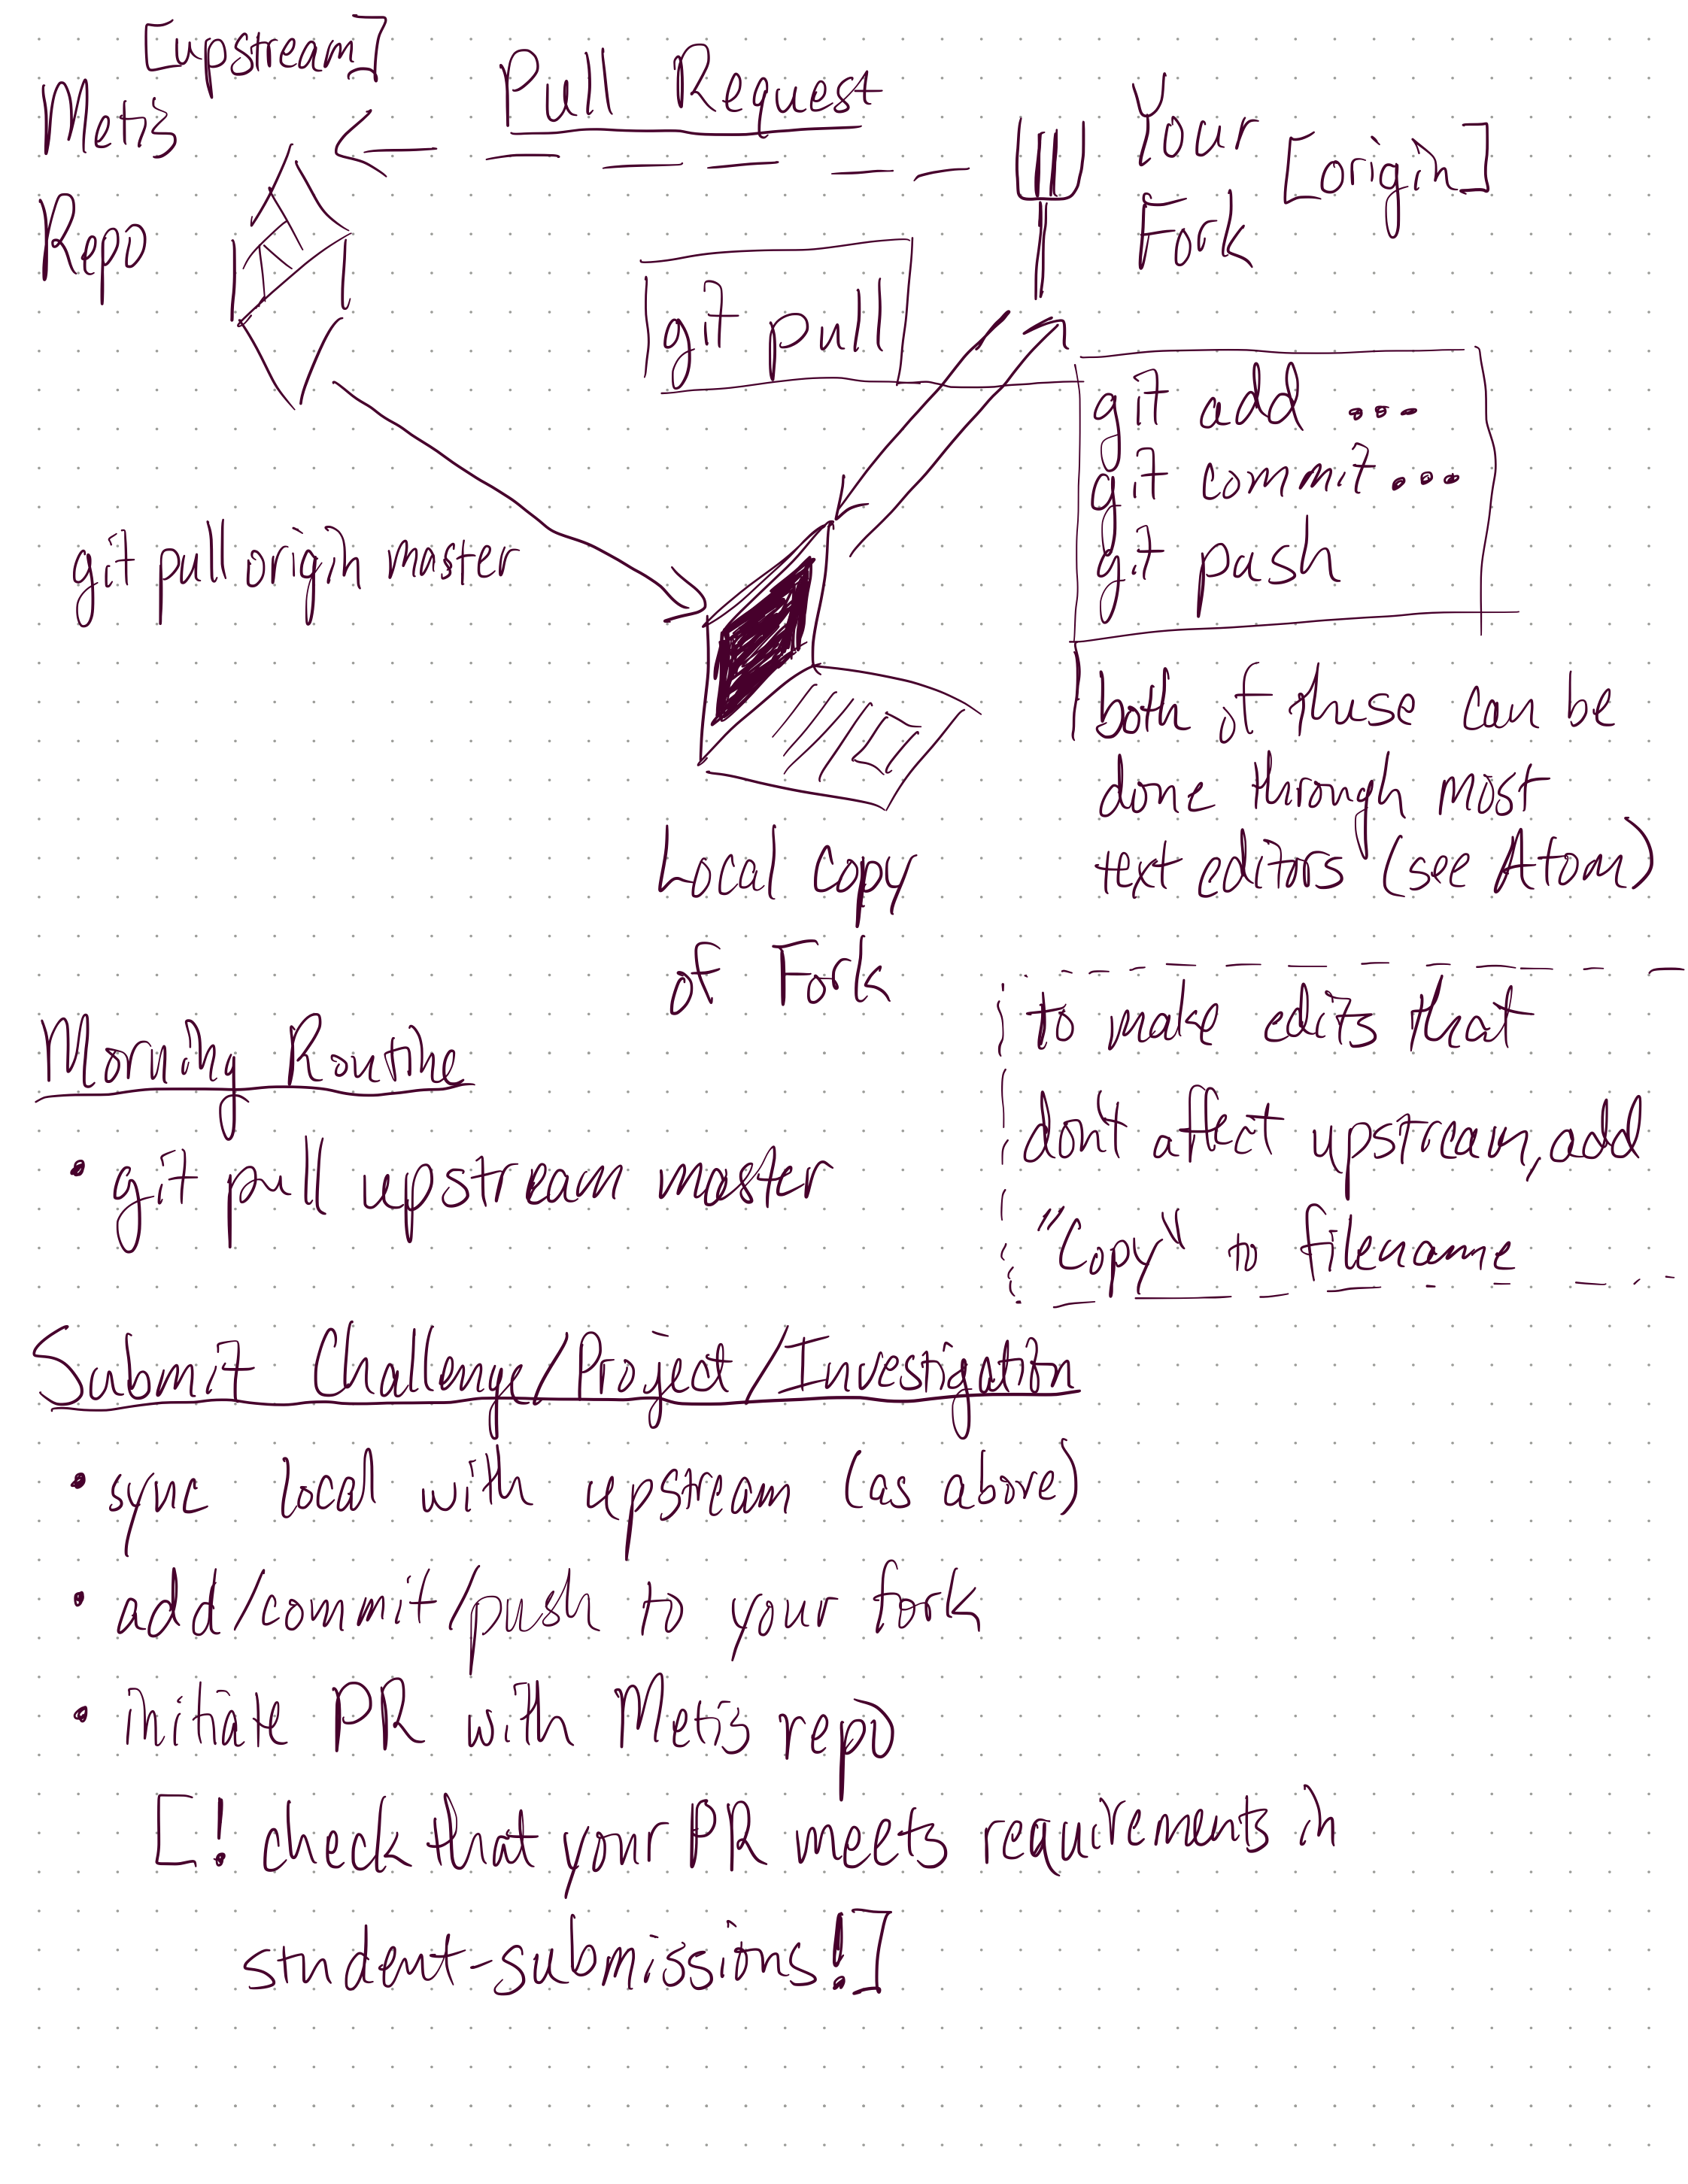 [upstream]
Metis
Repo
Pull Request
Your
Fork
[origin]
git pull
git add ...
git commit...
git push
git pull origin master
both of these can be
done through most
text editors (see Atom)
Local copy
of Fork
to make edits that
don't affect upstream, add
"Copy" to filename
Morning Routine
• git pull upstream master
Submit Challenge/Project/Investigation
• sync local with upstream (as above)
• add/commit/push to your fork
• initiate PR with Metis repo
[! check that your PR meets requirements in
student-submissions!]